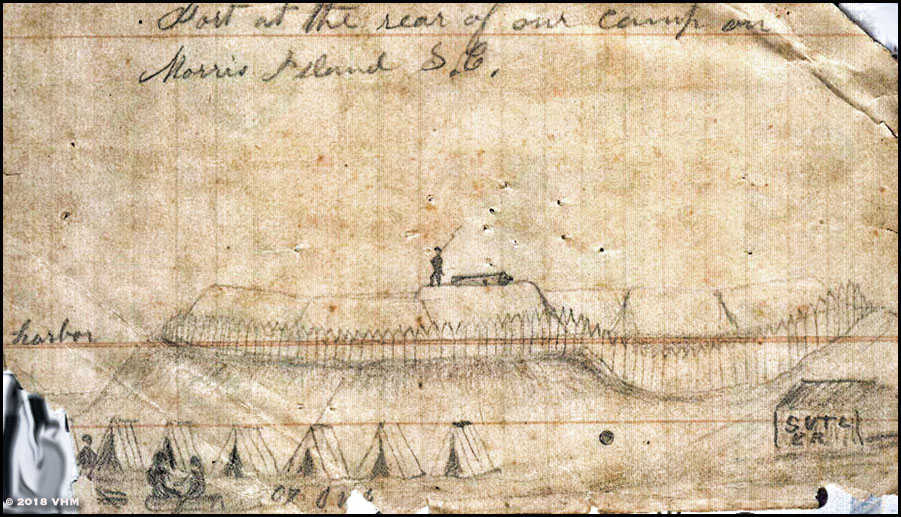 Fort at the rear of our camp on
Morris Island S.C.
harbor
SUTL
ER
© 2018 VHM